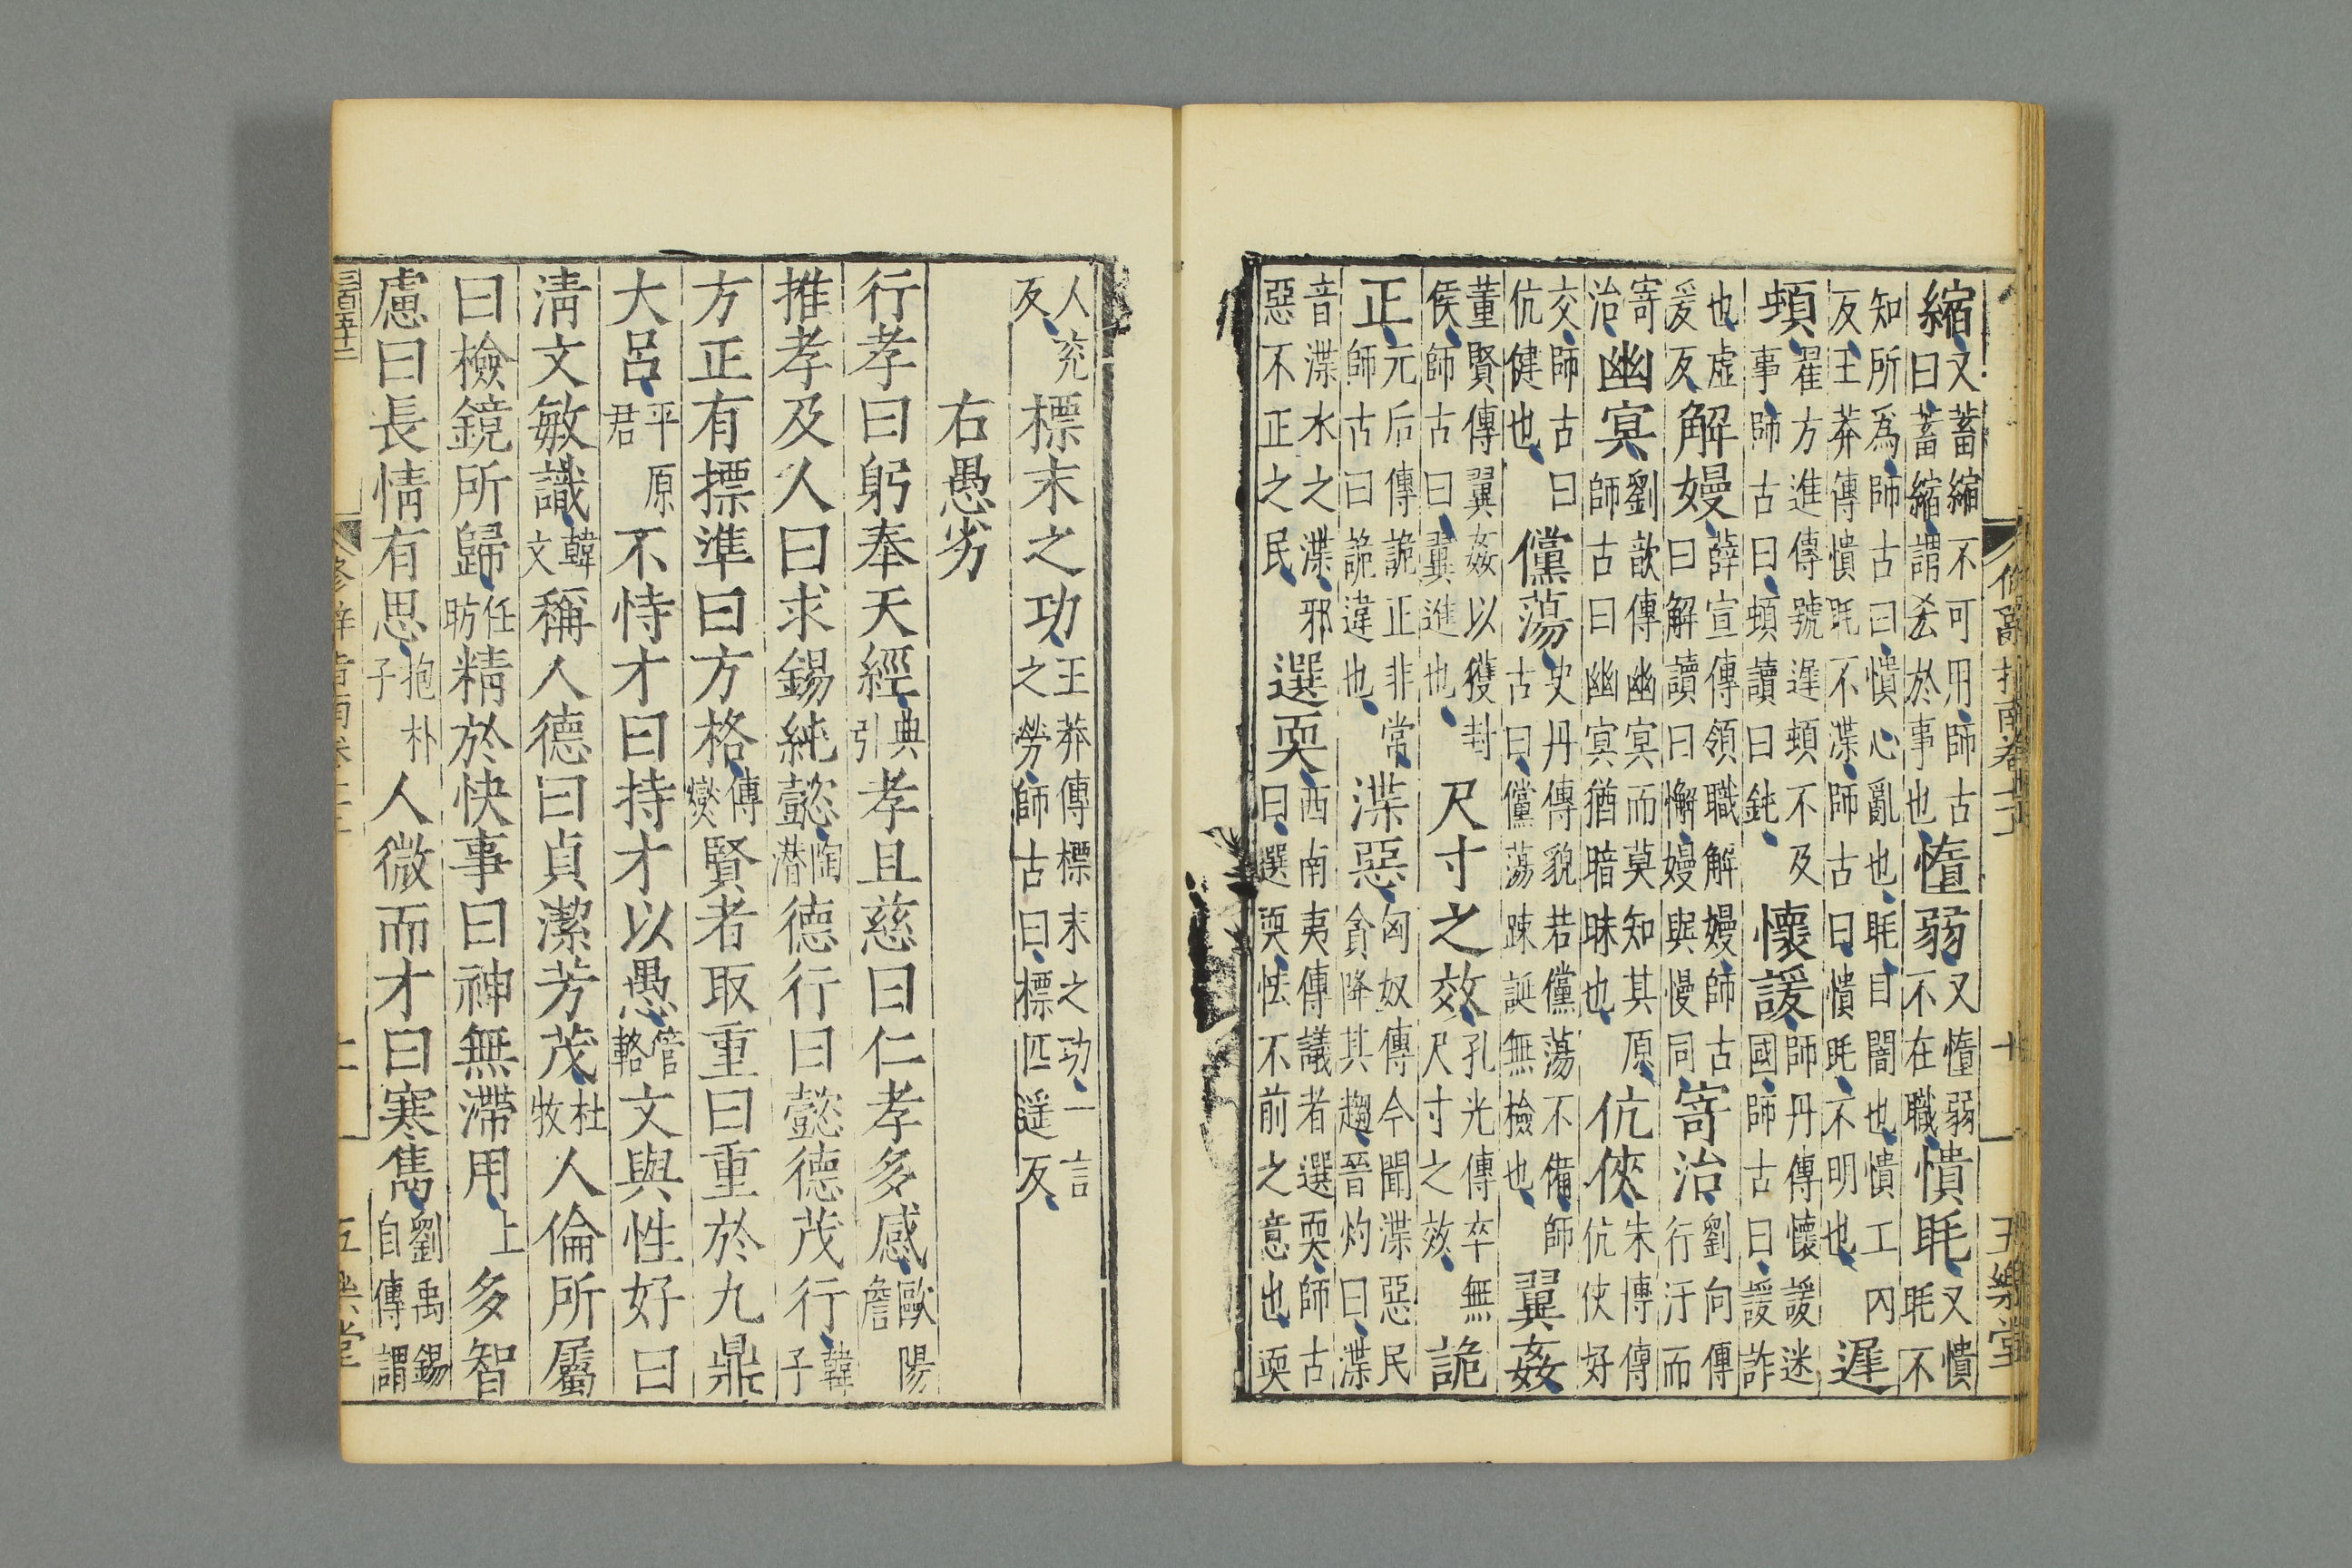 脩辭指南卷 十 五樂堂
縮又蓄縮不可用師古曰蓄縮謂於事也惰弱又惰弱不在職憒眊又憒眊不
知所為師古曰憒心亂也眊目闇也憒工內反王莽傳憒眊不渫師古曰憒眊不明也遲
頓翟方進傳號遲頓不及事師古曰頓讀曰鈍懷諼師丹傳懷諼迷國師古曰諼詐
也虛爰反解嫚薛宣傳領職解嫚師古曰解讀曰懈嫚與慢同寄治劉向傳行汙而
寄治幽冥劉歆傳幽冥而莫知其原師古曰幽冥猶暗昧也伉俠朱博傳伉俠好
交師古曰伉健也儻蕩史丹傳貌若儻蕩不備師古曰儻蕩疎誕無檢也翼姦
董賢傳翼姦以獲封侯師古曰翼進也尺寸之效孔光傳卒無尺寸之效詭
正元后傳詭正非常師古曰詭違也渫惡匈奴傳今聞渫惡民貪降其趨晉灼曰渫
音渫水之渫邪惡不正之民選耎西南夷傳議者選耎師古曰選耎怯不前之意也耎
人兖反標末之功王莽傳標末之功一言之勞師古曰標匹遥反
右愚劣
行孝曰躬奉天經典引孝且慈曰仁孝多感歐陽詹
推孝及人曰求錫純懿陶潛德行曰懿德茂行韓子
方正有摽準曰方格傳爕賢者取重曰重於九鼎
大呂平原君不恃才曰持才以愚管輅文與性好曰
清文敏識韓文稱人德曰貞潔芳茂杜牧人倫所屬
曰檢鏡所歸任昉精於快事曰神無滯用上多智
慮曰長情有思抱朴子人微而才曰寒雋劉禹錫自傳謂